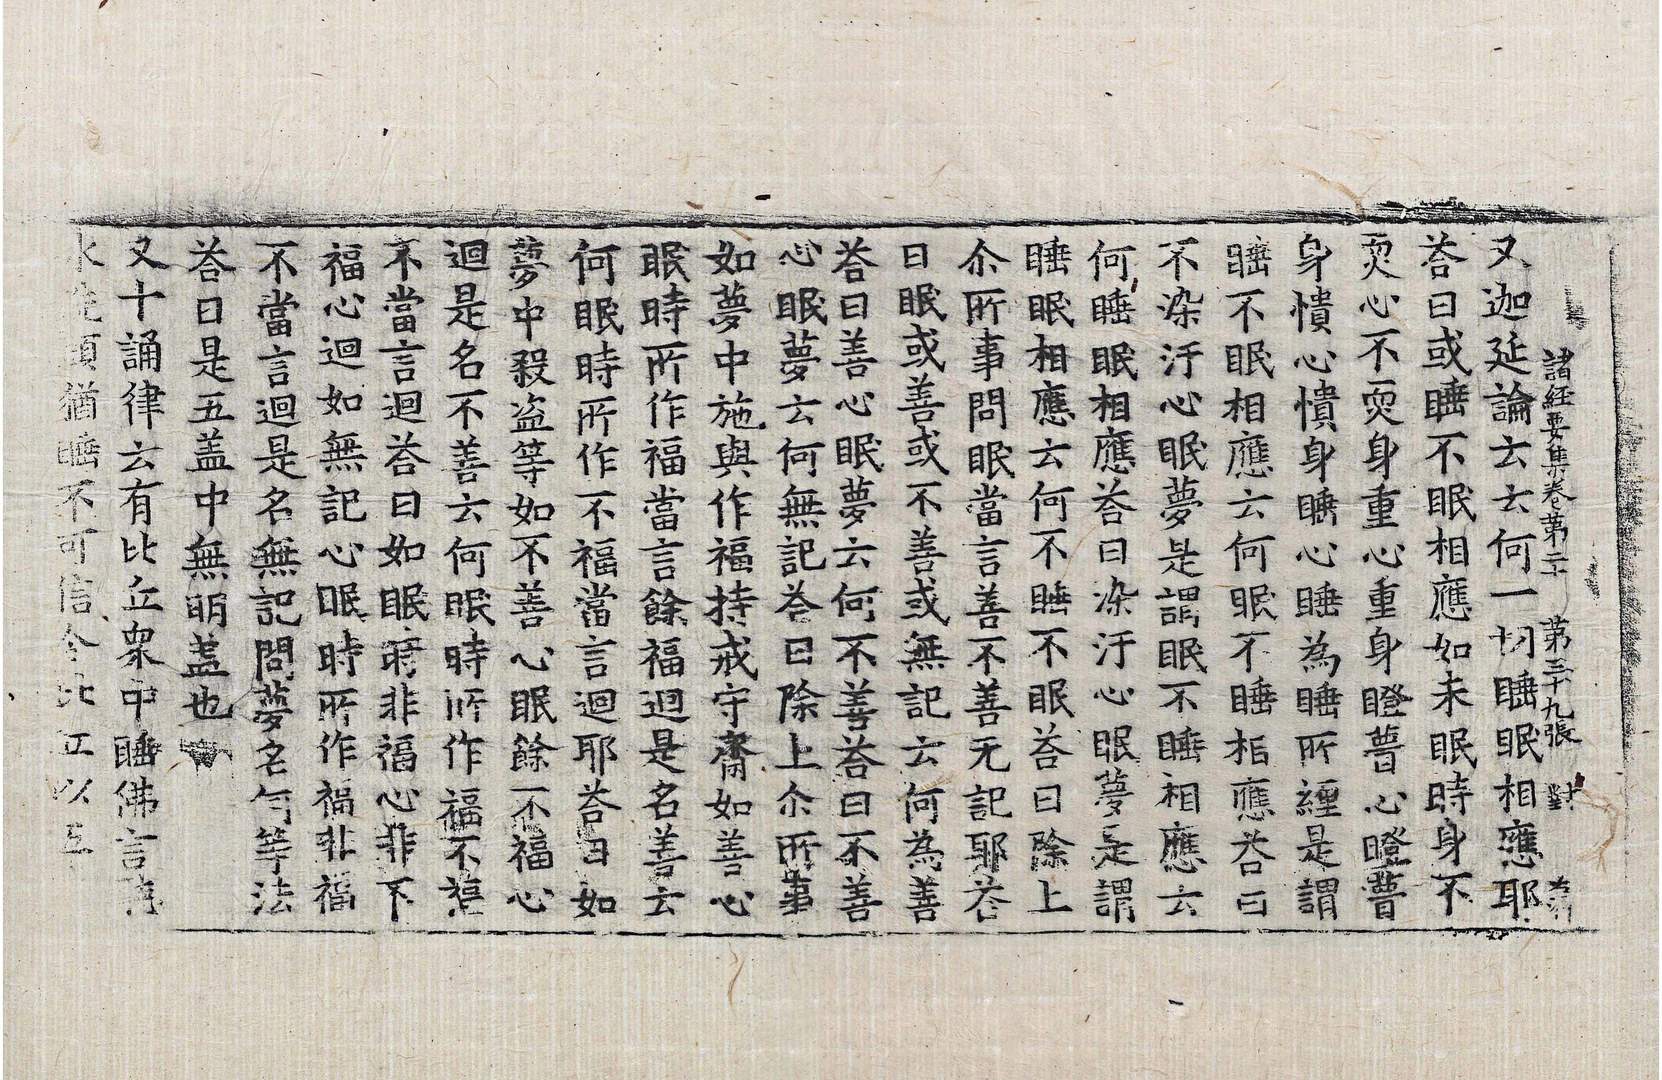 諸経要集卷第二十　第三十九張　對
又迦延論云云何一切睡眠相應耶
荅曰或睡不眠相應如未眠時身不
耎心不耎身重心重身瞪瞢心瞪瞢
身憒心憒身睡心睡為睡所纏是謂
睡不眠相應云何眠不睡相應荅曰
不染汙心眠夢是謂眠不睡相應云
何睡眠相應荅曰染汙心眠夢是謂
睡眠相應云何不睡不眠荅曰除上
尒所事問眠當言善不善无記耶荅
曰眠或善或不善或無記云何為善
荅曰善心眠夢云何不善荅曰不善
心眠夢云何無記荅曰除上尒所事
如夢中施與作福持戒守齋如善心
眠時所作福當言餘福迴是名善云
何眠時所作不福當言迴耶荅曰如
夢中殺盗等如不善心眠餘不福心
迴是名不善云何眠時所作福不福
不當言迴荅曰如眠時非福心非不
福心迴如無記心眠時所作福非福
不當言迴是名無記問夢名何等法
荅曰是五盖中無明盖也
又十誦律云有比丘衆中睡佛言聽
水洗頭猶睡不可信令比丘以五